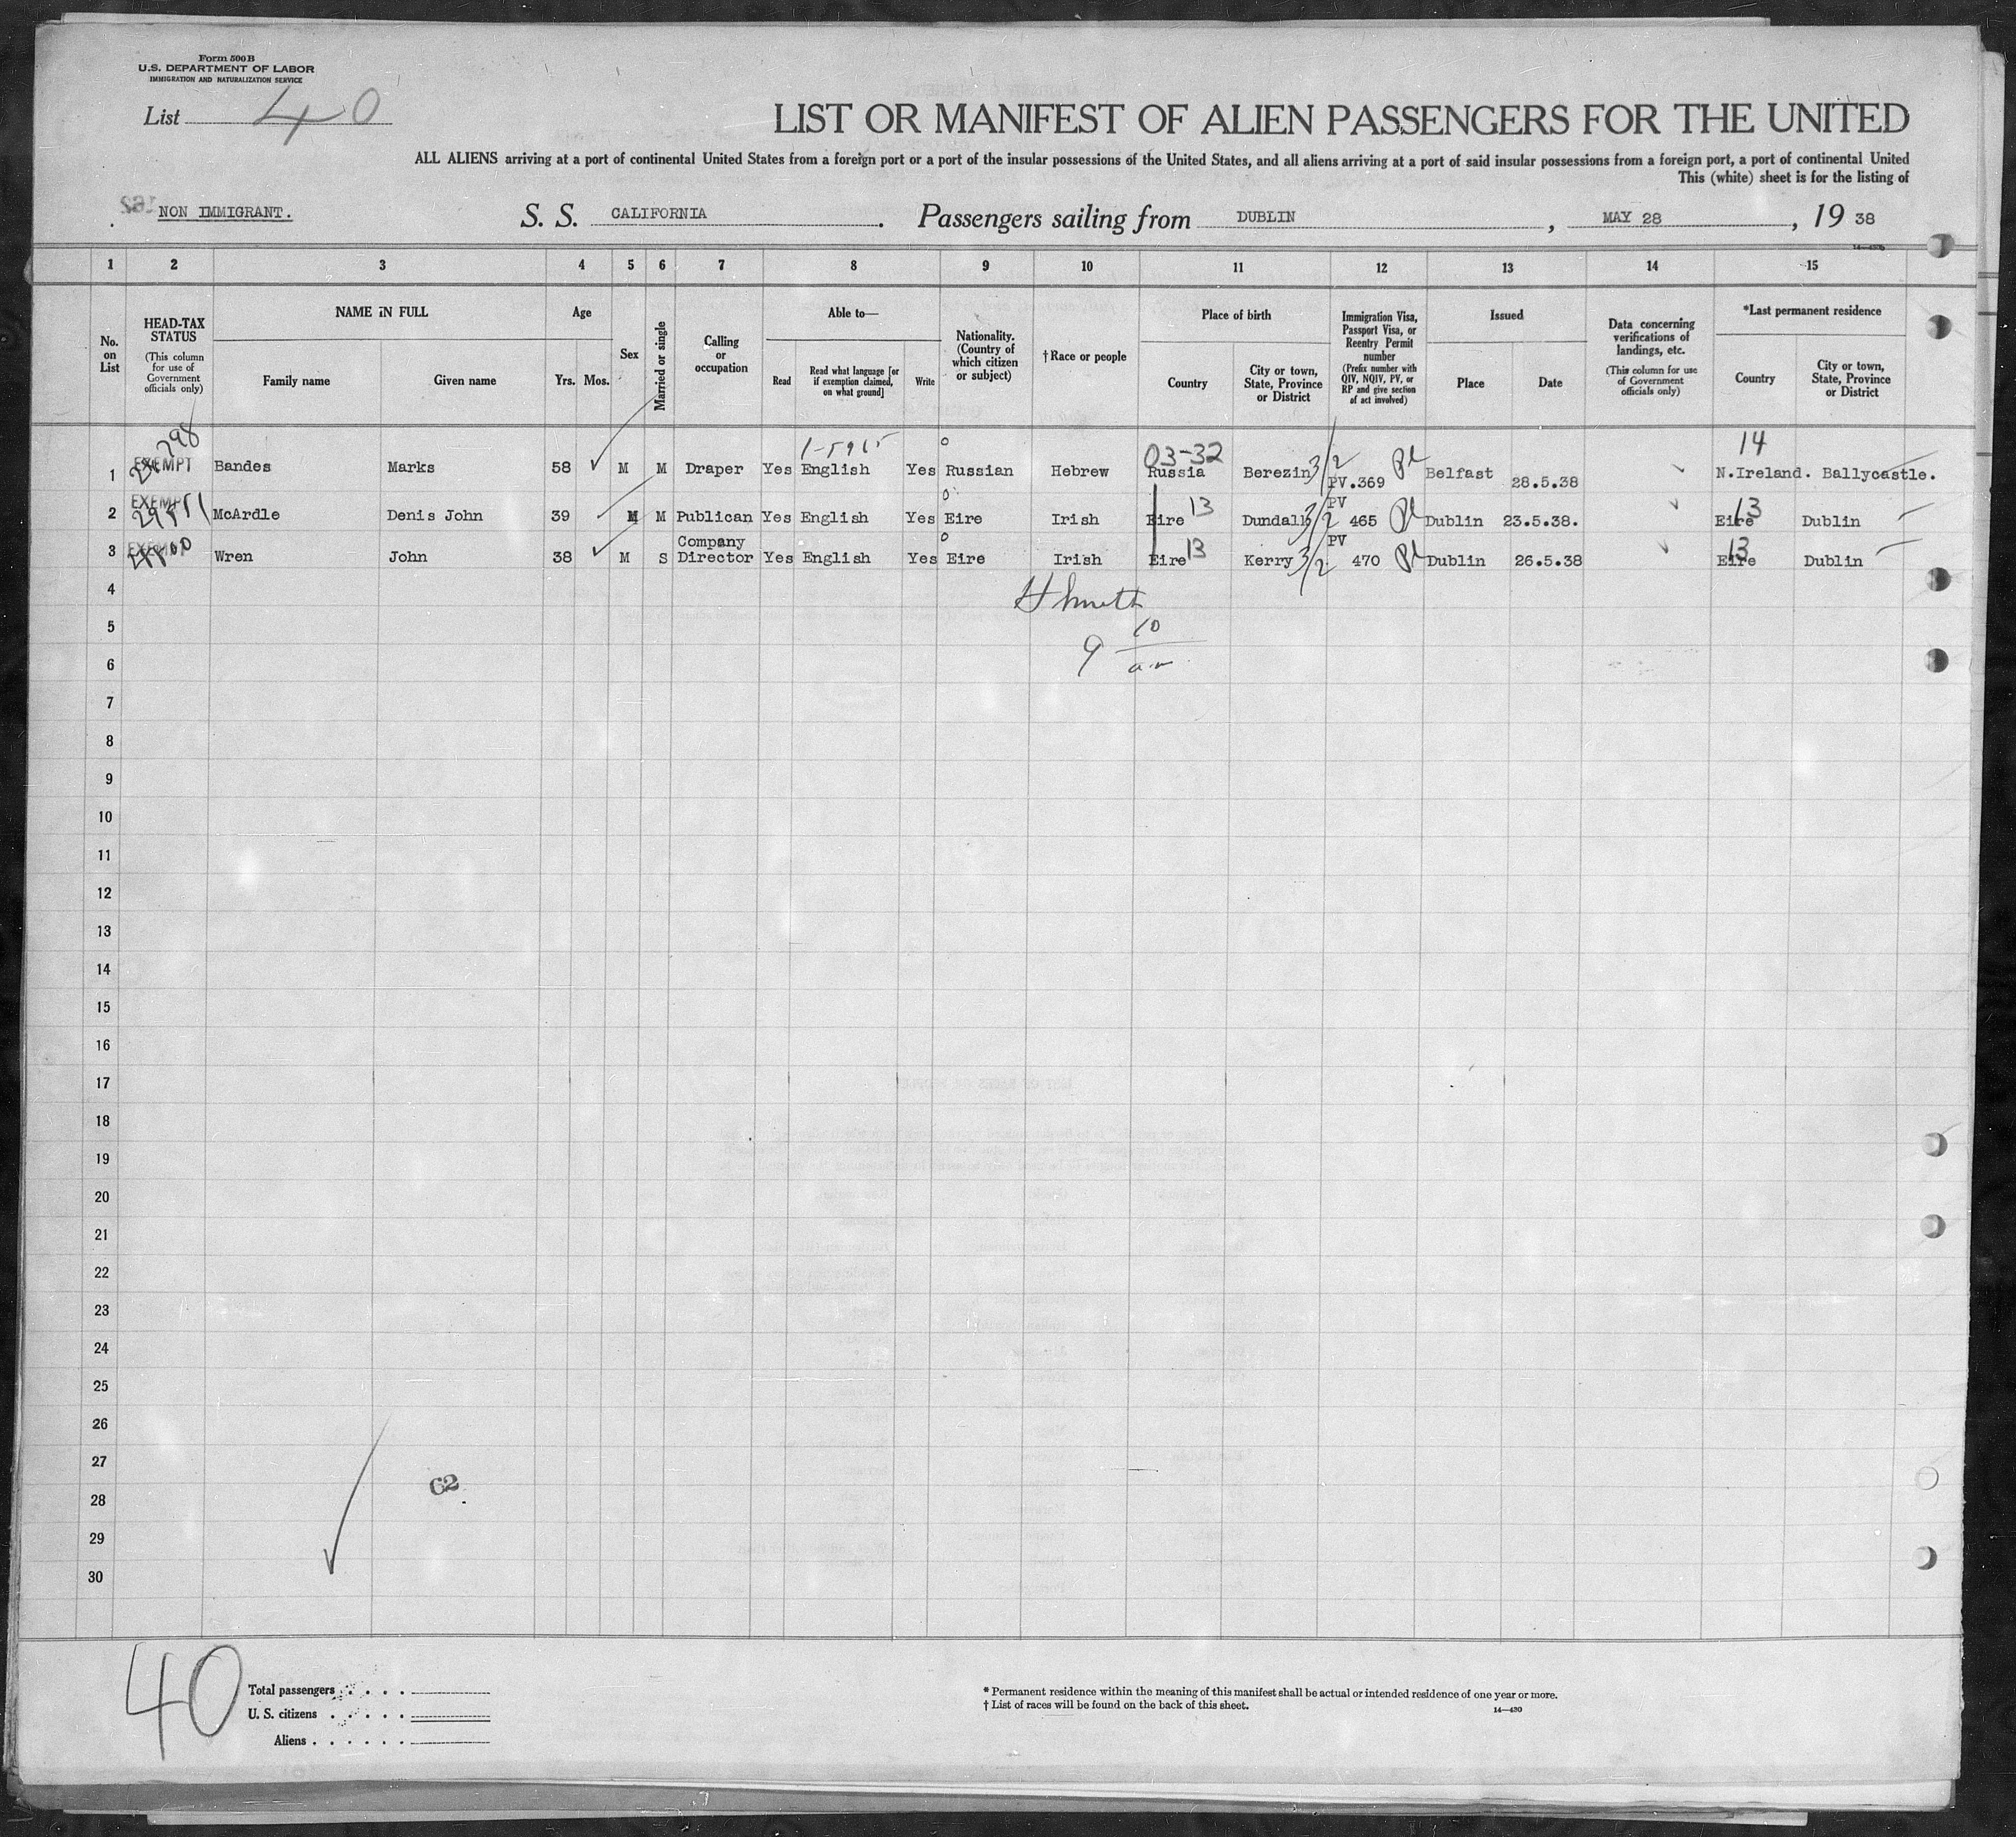 Form 500 B
U.S. DEPARTMENT OF LABOR
IMMIGRATION AND NATURALIZATION SERVICE
List 40
LIST OR MANIFEST OF ALIEN PASSENGERS FOR THE UNITED
ALL ALIENS arriving at a port of continental United States from a foreign port or a port of the insular possessions of the United States, and all aliens arriving at a port of said insular possessions from a foreign port, a port of continental United
This (white) sheet is for the listing of
NON IMMIGRANT. S. S. CALIFORNIA. Passengers sailing from DUBLIN, MAY 28, 19 38
1 2 3 4 5 6 7 8 9 10 11 12 13 14 15
No. on List
HEAD-TAX STATUS (This column for use of Government officials only)
NAME IN FULL
Family name Given name
Age
Yrs. Mos.
Sex
Married or single
Calling or occupation
Able to—
Read Read what language [or if exemption claimed, on what ground] Write
Nationality. (Country of which citizen or subject)
†Race or people
Place of birth
Country City or town, State, Province or District
Immigration Visa, Passport Visa, or Reentry Permit number (Prefix number with QIV, NQIV, PV, or RP and give section of act involved)
Issued
Place Date
Data concerning verifications of landings, etc. (This column for use of Government officials only)
*Last permanent residence
Country City or town, State, Province or District
03-32 14
1 EXEMPT Bandes Marks 58 M M Draper Yes English Yes Russian Hebrew Russia Berezin 3/2 PV.369 Belfast 28.5.38 N.Ireland. Ballycastle.
2 EXEMPT McArdle Denis John 39 M M Publican Yes English Yes Eire Irish Eire 13 Dundalk 3/2 PV 465 Dublin 23.5.38. Eire 13 Dublin
3 EXEMPT Wren John 38 M S Company Director Yes English Yes Eire Irish Eire 13 Kerry 3/2 PV 470 Dublin 26.5.38 Eire 13 Dublin
4
H Smith
5
9 10
6
7
8
9
10
11
12
13
14
15
16
17
18
19
20
21
22
23
24
25
26
27
62
28
29
30
40
Total passengers
U. S. citizens
Aliens
* Permanent residence within the meaning of this manifest shall be actual or intended residence of one year or more.
† List of races will be found on the back of this sheet.
14—430